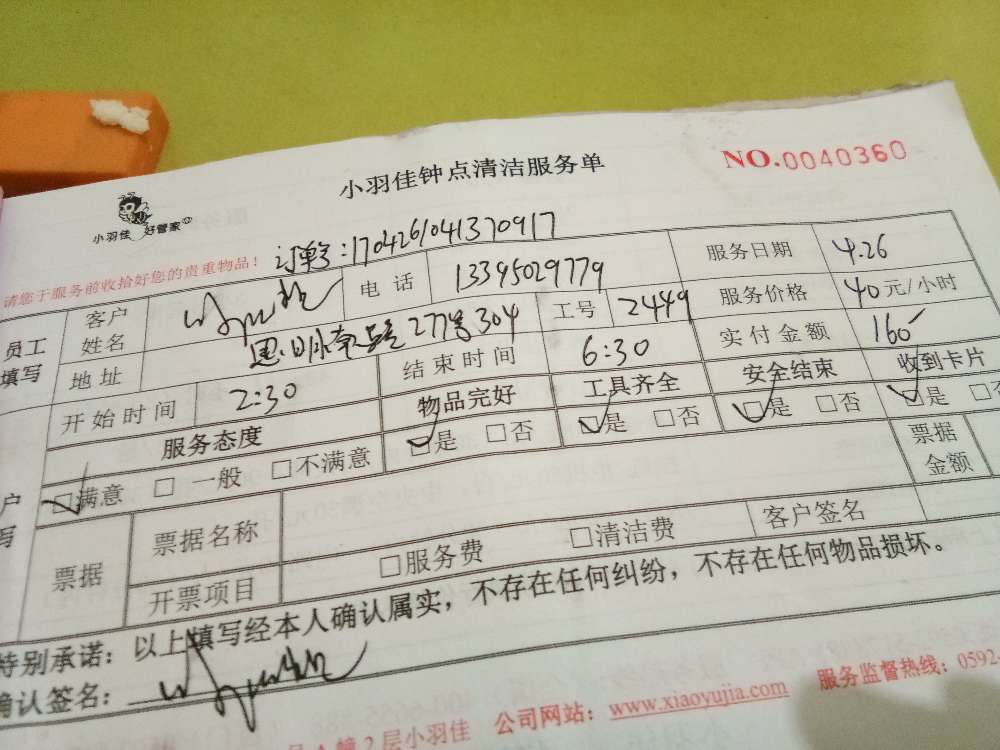 小羽佳钟点清洁服务单
NO.0040360
小羽佳 好管家
请您于服务前收拾好您的贵重物品！
订单号:1704261041370917
员工填写
客户姓名
电话 13395029779
服务日期 4.26
地址 277号304
工号 2449
服务价格 40元/小时
开始时间 2:30
结束时间 6:30
实付金额 160
服务态度
物品完好
工具齐全
安全结束
收到卡片
户
写
满意 一般 不满意
是 否
是 否
是 否
是 否
票据
票据名称
票据金额
开票项目
服务费 清洁费
客户签名
特别承诺：以上填写经本人确认属实，不存在任何纠纷，不存在任何物品损坏。
确认签名：
幢2层小羽佳 公司网站：www.xiaoyujia.com 服务监督热线：0592-